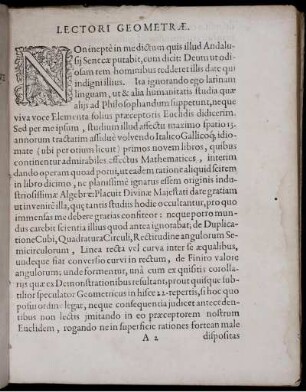 LECTORI GEOMETRÆ.
NOn ineptè in me dictum quis illud Andalu-
sij Senecæ putabit, cum dicit: Deum ut odi-
osam rem hominibus redderet illis dare qui
indigni illius. Ita ignorando ego latinam
linguam, ut & alia humanitatis studia quæ
alijs ad Philosophandum suppetunt, neque
viva voce Elementa solius præceptoris Euclidis didicerim.
Sed per me ipsum, studium illud affectu maximo spatio 15.
annorum tractatim assiduè volvendo Italico Gallicoq; idio-
mate (ubi per otium licuit) primos novem libros, quibus
continentur admirabiles effectus Mathematices, interim
dando operam quoad potui, ut eadem ratione aliquid scirem
in libro decimo, ne planissimè ignarus essem originis indu-
striosissimæ Algebræ: Placuit Divinæ Majestati dare gratiam
ut invenirē illa, quę tantis studiis hodie occultantur, pro quo
immensas me debere gratias confiteor: neque porro mun-
dus carebit scientia illius quod antea ignorabat, de Duplica-
tione Cubi, Quadratura Circuli, Rectitudine angulorum Se-
micirculorum, Linea recta vel curva inter se æqualibus,
undeque fiat conversio curvi in rectum, de Finito valore
angulorum; unde formentur, unà cum ex quisitis corolla-
rus quæ ex Demonstrationibus resultant, prout quisque sub-
tilitor speculator Geometricus in hisce 22. repertis, si hoc quo
posui ordine legat, neque consequentia judicet antecceden-
tibus non lectis imitando in eo præceptorem nostrum
Euclidem, rogando ne in superficie rationes forte an male
A 2 dispositas